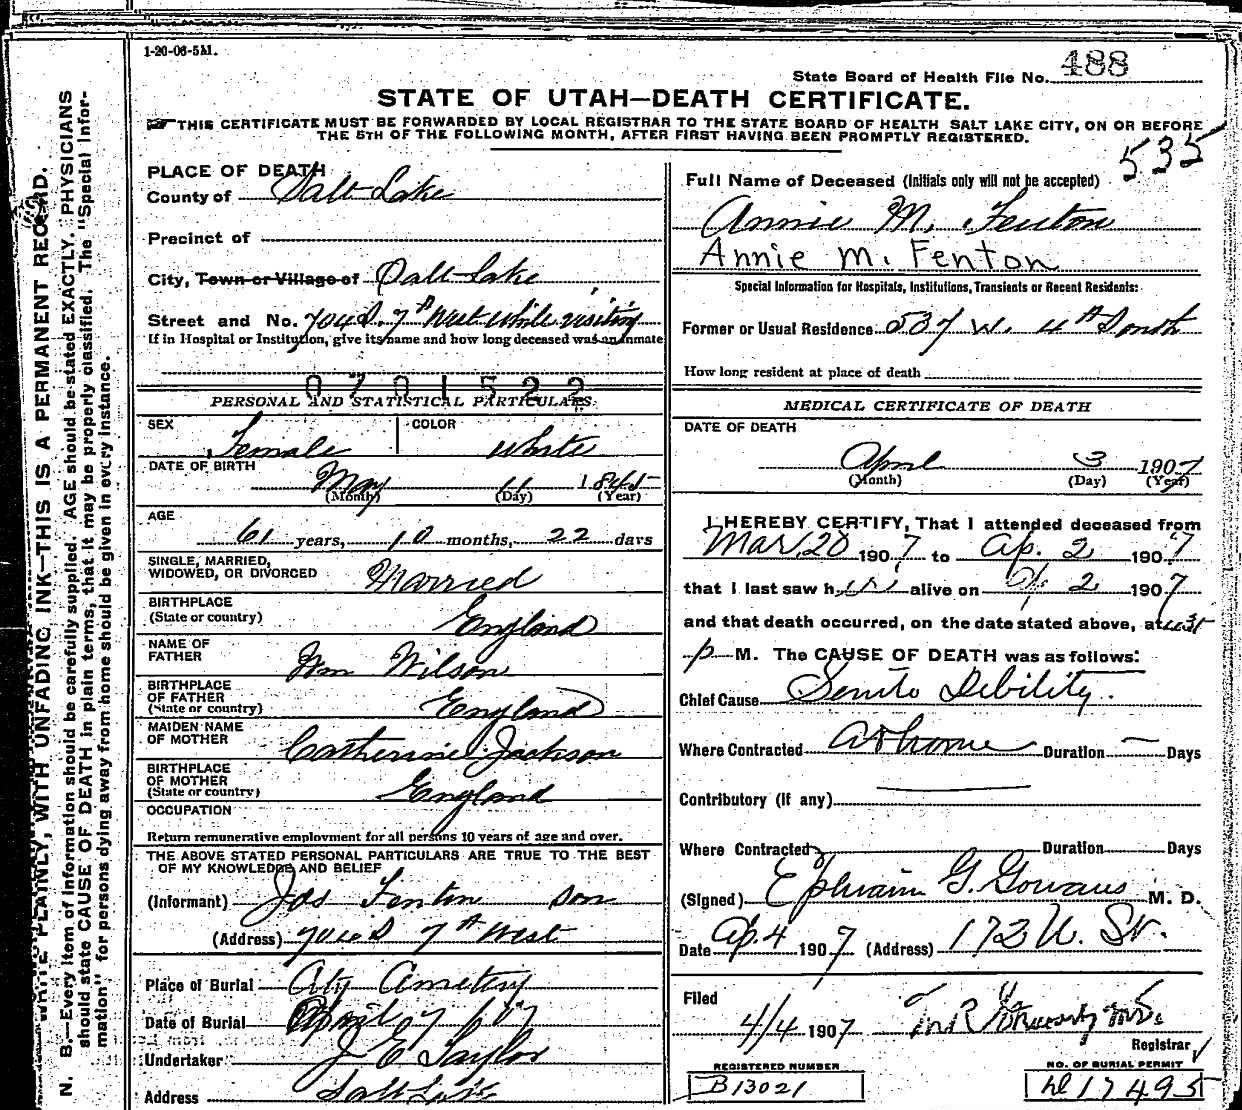 1-20-06-5M.
State Board of Health File No. 488
STATE OF UTAH—DEATH CERTIFICATE.
THIS CERTIFICATE MUST BE FORWARDED BY LOCAL REGISTRAR TO THE STATE BOARD OF HEALTH SALT LAKE CITY, ON OR BEFORE
THE 5TH OF THE FOLLOWING MONTH, AFTER FIRST HAVING BEEN PROMPTLY REGISTERED.
535
N. B.—Every item of information should be carefully supplied. AGE should be stated EXACTLY. PHYSICIANS
should state CAUSE OF DEATH in plain terms, that it may be properly classified. The "Special Infor-
mation" for persons dying away from home should be given in every instance.
WRITE PLAINLY, WITH UNFADING INK—THIS IS A PERMANENT RECORD.
PLACE OF DEATH
County of Salt Lake
Precinct of
City, Town or Village of Salt Lake
Street and No. 704 S. 7th West while visiting
If in Hospital or Institution, give its name and how long deceased was an inmate
0701522
PERSONAL AND STATISTICAL PARTICULARS.
SEX Female COLOR White
DATE OF BIRTH May 11 1845
(Month) (Day) (Year)
AGE
61 years, 10 months, 22 days
SINGLE, MARRIED,
WIDOWED, OR DIVORCED Married
BIRTHPLACE
(State or country) England
NAME OF
FATHER Wm Wilson
BIRTHPLACE
OF FATHER
(State or country) England
MAIDEN NAME
OF MOTHER Catherine Jackson
BIRTHPLACE
OF MOTHER
(State or country) England
OCCUPATION
Return remunerative employment for all persons 10 years of age and over.
THE ABOVE STATED PERSONAL PARTICULARS ARE TRUE TO THE BEST
OF MY KNOWLEDGE AND BELIEF
(Informant) Jas Fenton son
(Address) 704 S 7th West
Place of Burial City Cemetery
Date of Burial April 7 1907
Undertaker J E Taylor
Address Salt Lake
Full Name of Deceased (Initials only will not be accepted)
Annie M. Fenton
Annie M. Fenton
Special Information for Hospitals, Institutions, Transients or Recent Residents:
Former or Usual Residence 537 W. 4th South
How long resident at place of death
MEDICAL CERTIFICATE OF DEATH
DATE OF DEATH
April 3 1907
(Month) (Day) (Year)
I HEREBY CERTIFY, That I attended deceased from
Mar 20 1907 to Ap. 2 1907
that I last saw her alive on Ap. 2 1907
and that death occurred, on the date stated above, at
p M. The CAUSE OF DEATH was as follows:
Chief Cause Debility.
Where Contracted At home Duration — Days
Contributory (if any)
Where Contracted Duration Days
(Signed) Ephraim G. Gowans M. D.
Date Ap. 4 1907 (Address) 172 U. St.
Filed
4/4 1907
Registrar
REGISTERED NUMBER
B 13021
NO. OF BURIAL PERMIT
17495